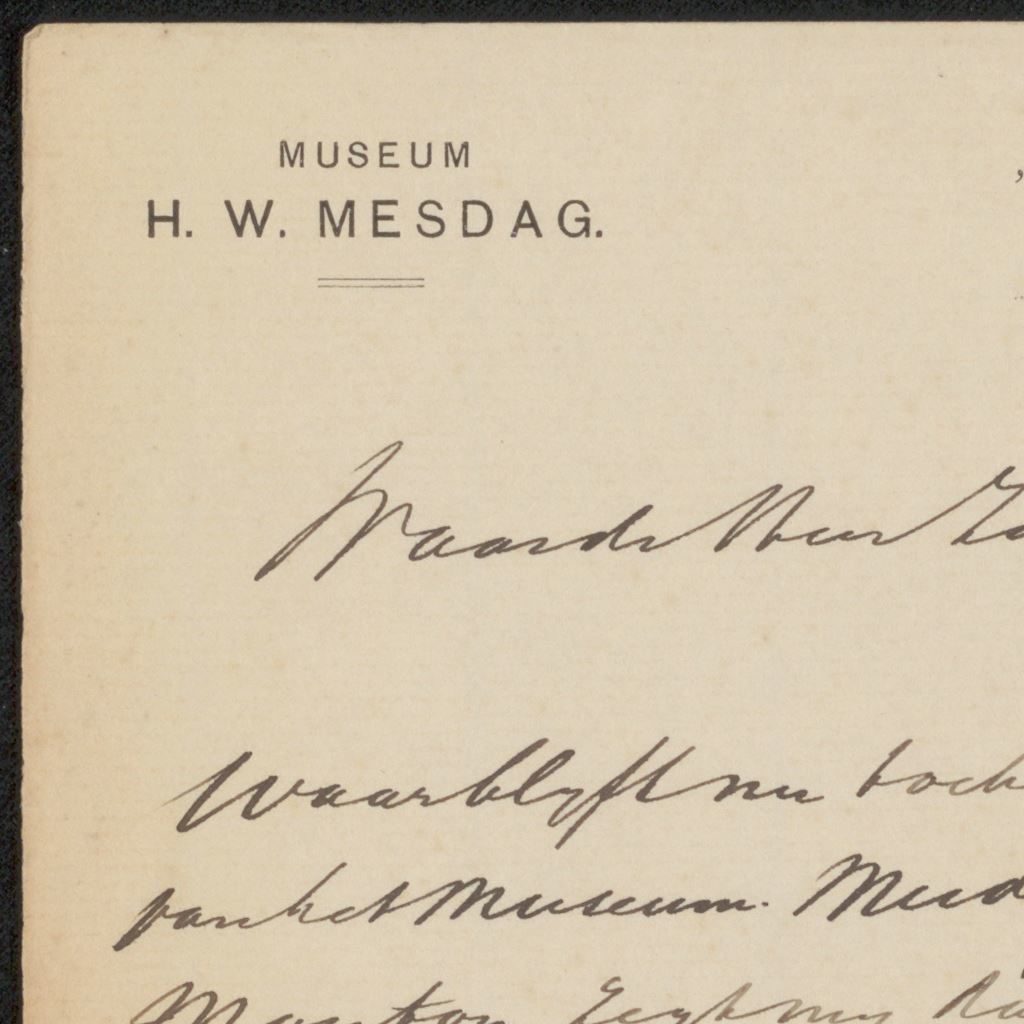 MUSEUM
H. W. MESDAG.
Waarde Heer
Waar blyft nu toch
van het Museum.